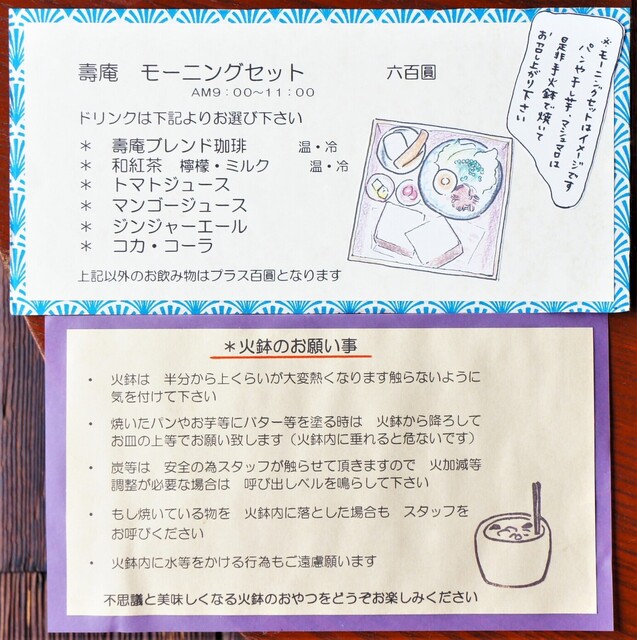 壽庵 モーニングセット 六百圓
AM9:00〜11:00
ドリンクは下記よりお選び下さい
＊ 壽庵ブレンド珈琲 温・冷
＊ 和紅茶 檸檬・ミルク 温・冷
＊ トマトジュース
＊ マンゴージュース
＊ ジンジャーエール
＊ コカ・コーラ
上記以外のお飲み物はプラス百圓となります
※モーニングセットはイメージです
パンや干し芋・マシュマロは
是非手火鉢で焼いて
お召し上がり下さい
＊火鉢のお願い事
・ 火鉢は 半分から上くらいが大変熱くなります触らないように
気を付けて下さい
・ 焼いたパンやお芋等にバター等を塗る時は 火鉢から降ろして
お皿の上等でお願い致します（火鉢内に垂れると危ないです）
・ 炭等は 安全の為スタッフが触らせて頂きますので 火加減等
調整が必要な場合は 呼び出しベルを鳴らして下さい
・ もし焼いている物を 火鉢内に落とした場合も スタッフを
お呼びください
・ 火鉢内に水等をかける行為もご遠慮願います
不思議と美味しくなる火鉢のおやつをどうぞお楽しみください